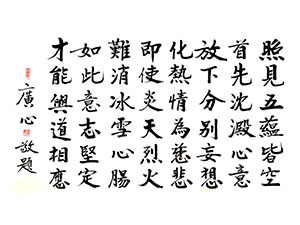 照見五蘊皆空
首先沈澱心意
放下分別妄想
化熱情為慈悲
即使炎天烈火
難消冰雪心腸
如此意志堅定
才能與道相應
廣心敬題